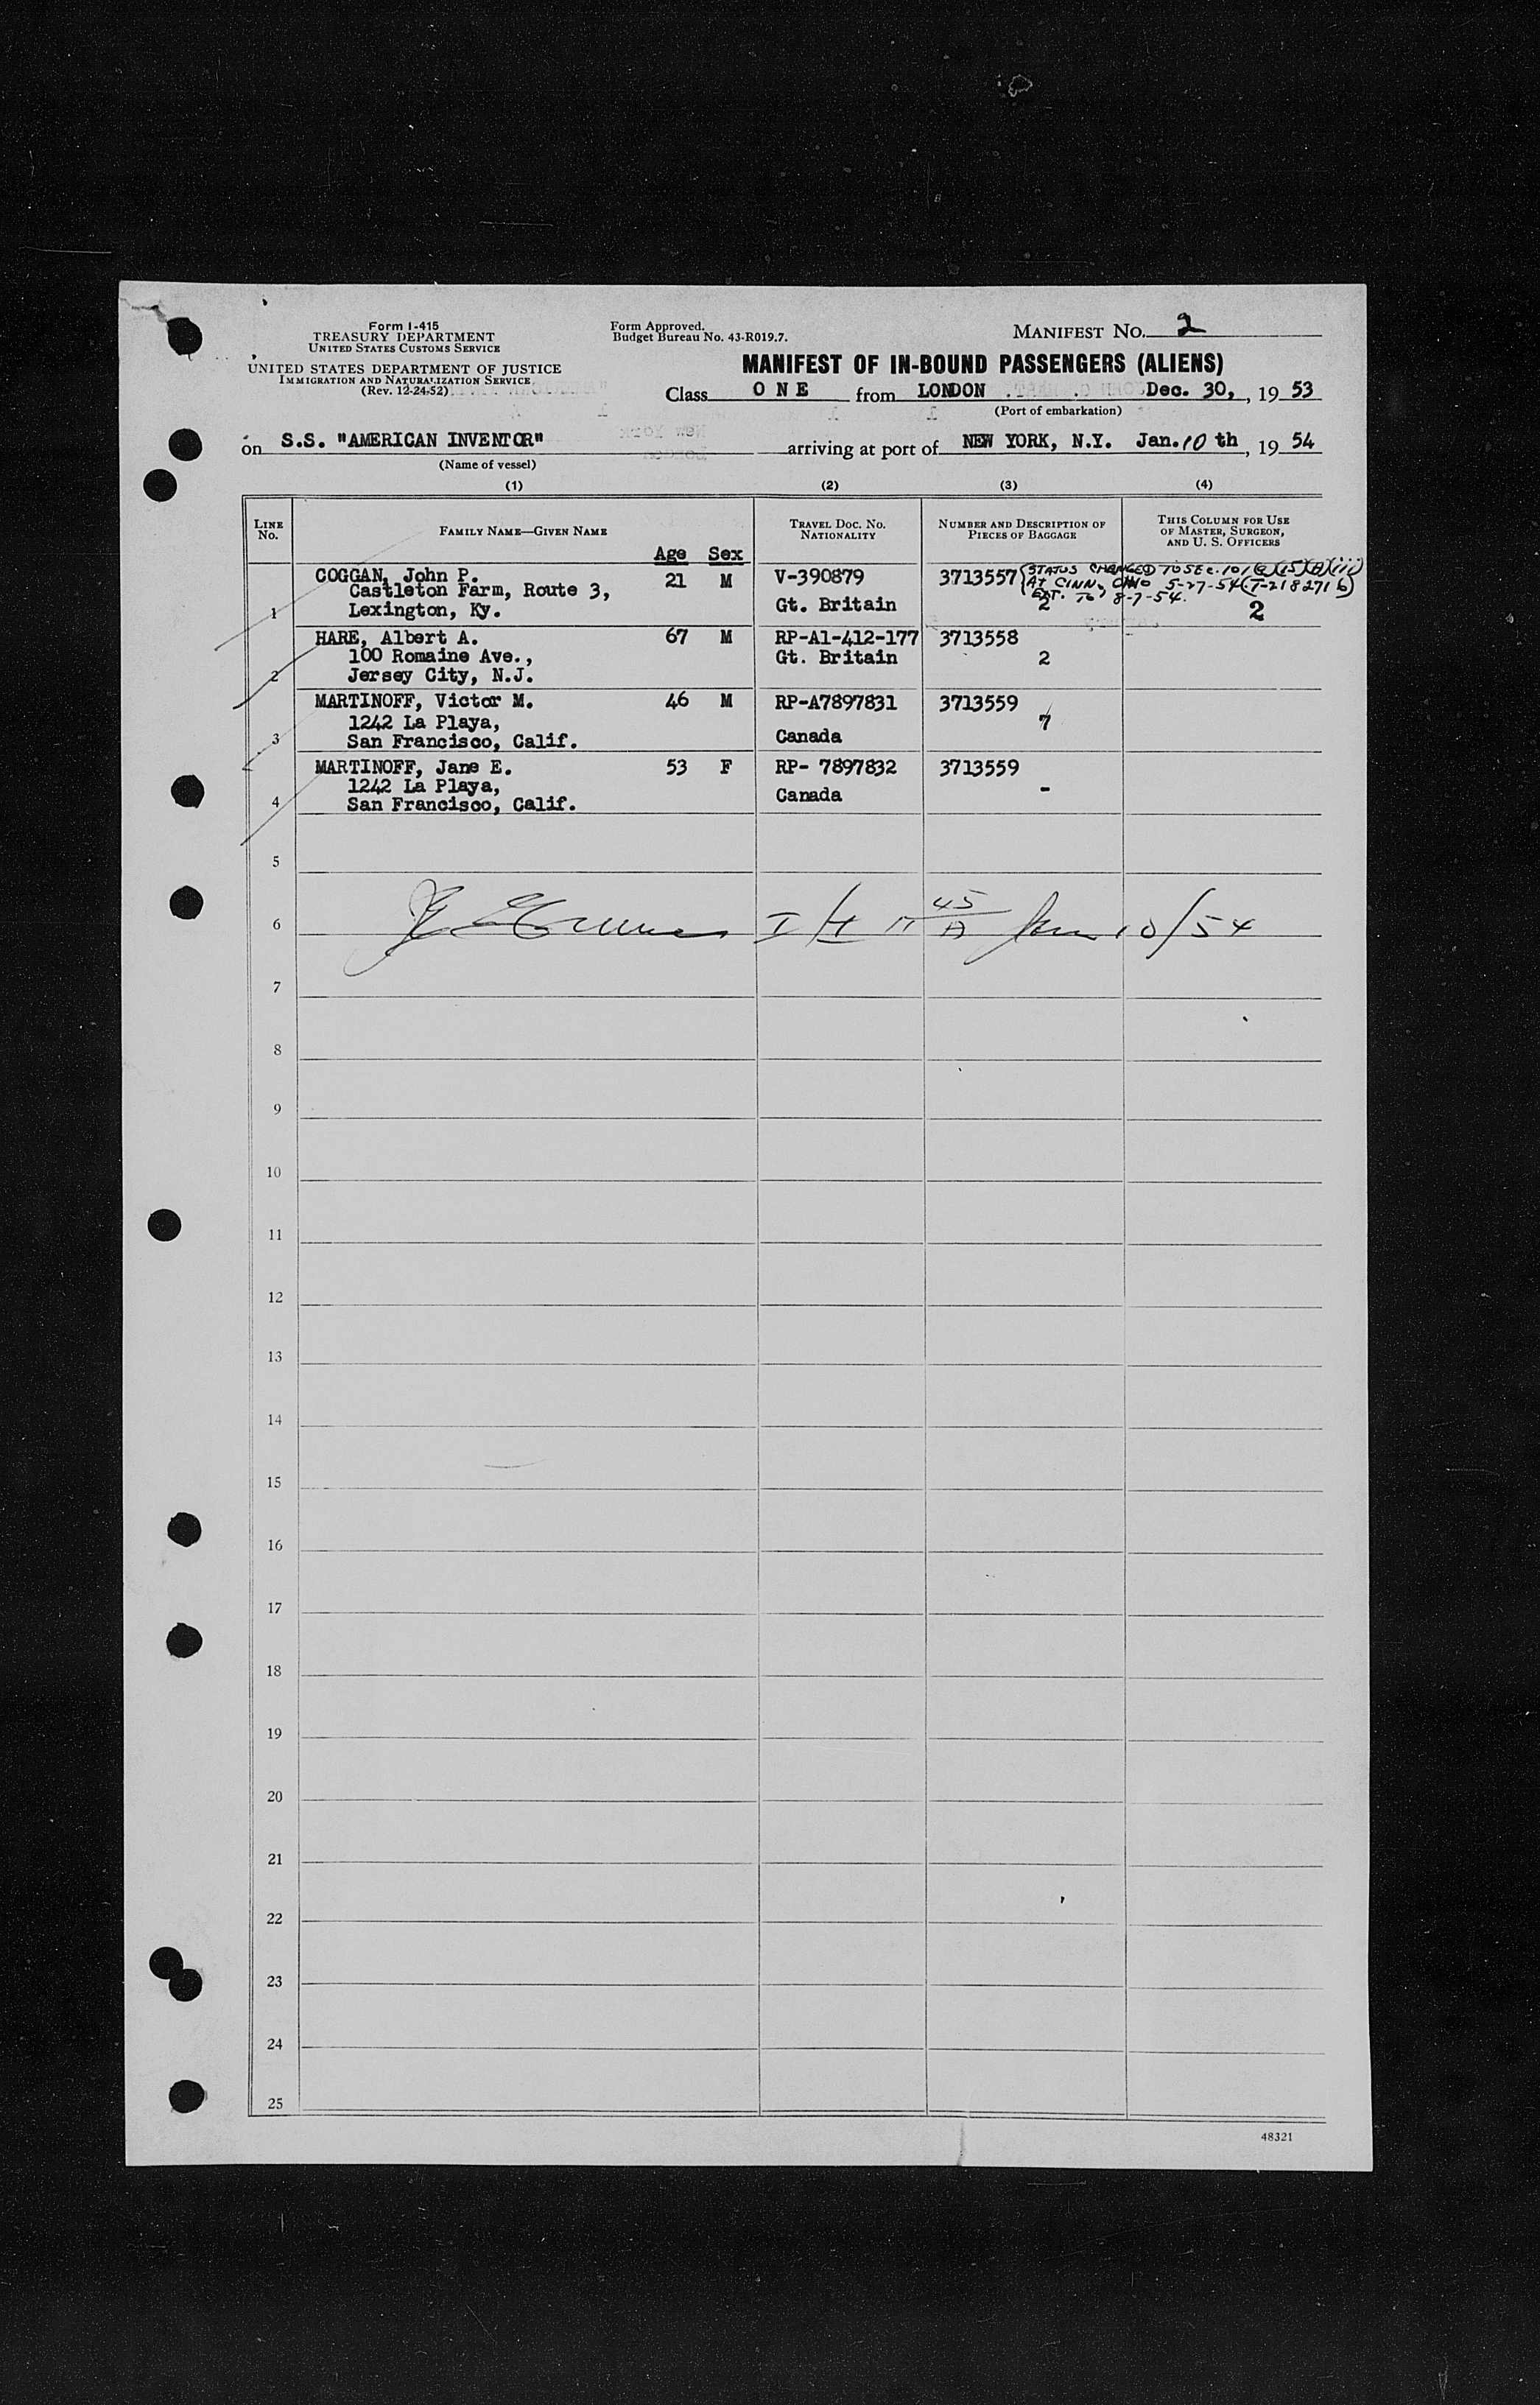 Form I-415
TREASURY DEPARTMENT
UNITED STATES CUSTOMS SERVICE
UNITED STATES DEPARTMENT OF JUSTICE
IMMIGRATION AND NATURALIZATION SERVICE
(Rev. 12-24-52)
Form Approved.
Budget Bureau No. 43-R019.7.
MANIFEST NO. 2
MANIFEST OF IN-BOUND PASSENGERS (ALIENS)
Class ONE from LONDON Dec. 30, , 19 53
(Port of embarkation)
on S.S. "AMERICAN INVENTOR" arriving at port of NEW YORK, N.Y. Jan. 10 th , 19 54
(Name of vessel)
(1) (2) (3) (4)
LINE No. FAMILY NAME—GIVEN NAME Age Sex TRAVEL DOC. NO. NATIONALITY NUMBER AND DESCRIPTION OF PIECES OF BAGGAGE THIS COLUMN FOR USE OF MASTER, SURGEON, AND U. S. OFFICERS
COGGAN, John P. 21 M V-390879 3713557 STATUS CHANGED TO SEC. 101(a)(15)(H)(iii)
Castleton Farm, Route 3, AT CINN, OHIO 5-27-54 (T-2182716)
EXT. TO 8-7-54.
1 Lexington, Ky. Gt. Britain 2 2
HARE, Albert A. 67 M RP-A1-412-177 3713558
100 Romaine Ave., Gt. Britain 2
2 Jersey City, N.J.
MARTINOFF, Victor M. 46 M RP-A7897831 3713559
1242 La Playa, 7
3 San Francisco, Calif. Canada
MARTINOFF, Jane E. 53 F RP- 7897832 3713559
1242 La Playa, Canada -
4 San Francisco, Calif.
5
6 45 Jan 10/54
7
8
9
10
11
12
13
14
15
16
17
18
19
20
21
22
23
24
25
48321